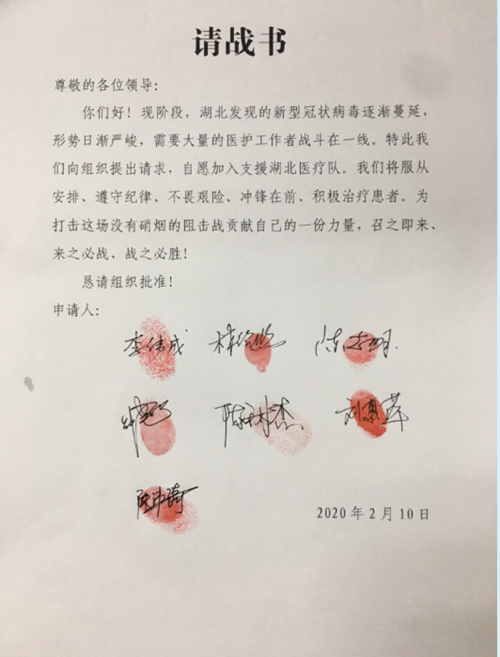 请战书
尊敬的各位领导:
你们好! 现阶段, 湖北发现的新型冠状病毒逐渐蔓延,
形势日渐严峻, 需要大量的医护工作者战斗在一线。特此我
们向组织提出请求, 自愿加入支援湖北医疗队。我们将服从
安排、遵守纪律、不畏艰险、冲锋在前、积极治疗患者。为
打击这场没有硝烟的阻击战贡献自己的一份力量, 召之即来、
来之必战、战之必胜!
恳请组织批准!
申请人:
李伟成
2020 年 2 月 10 日